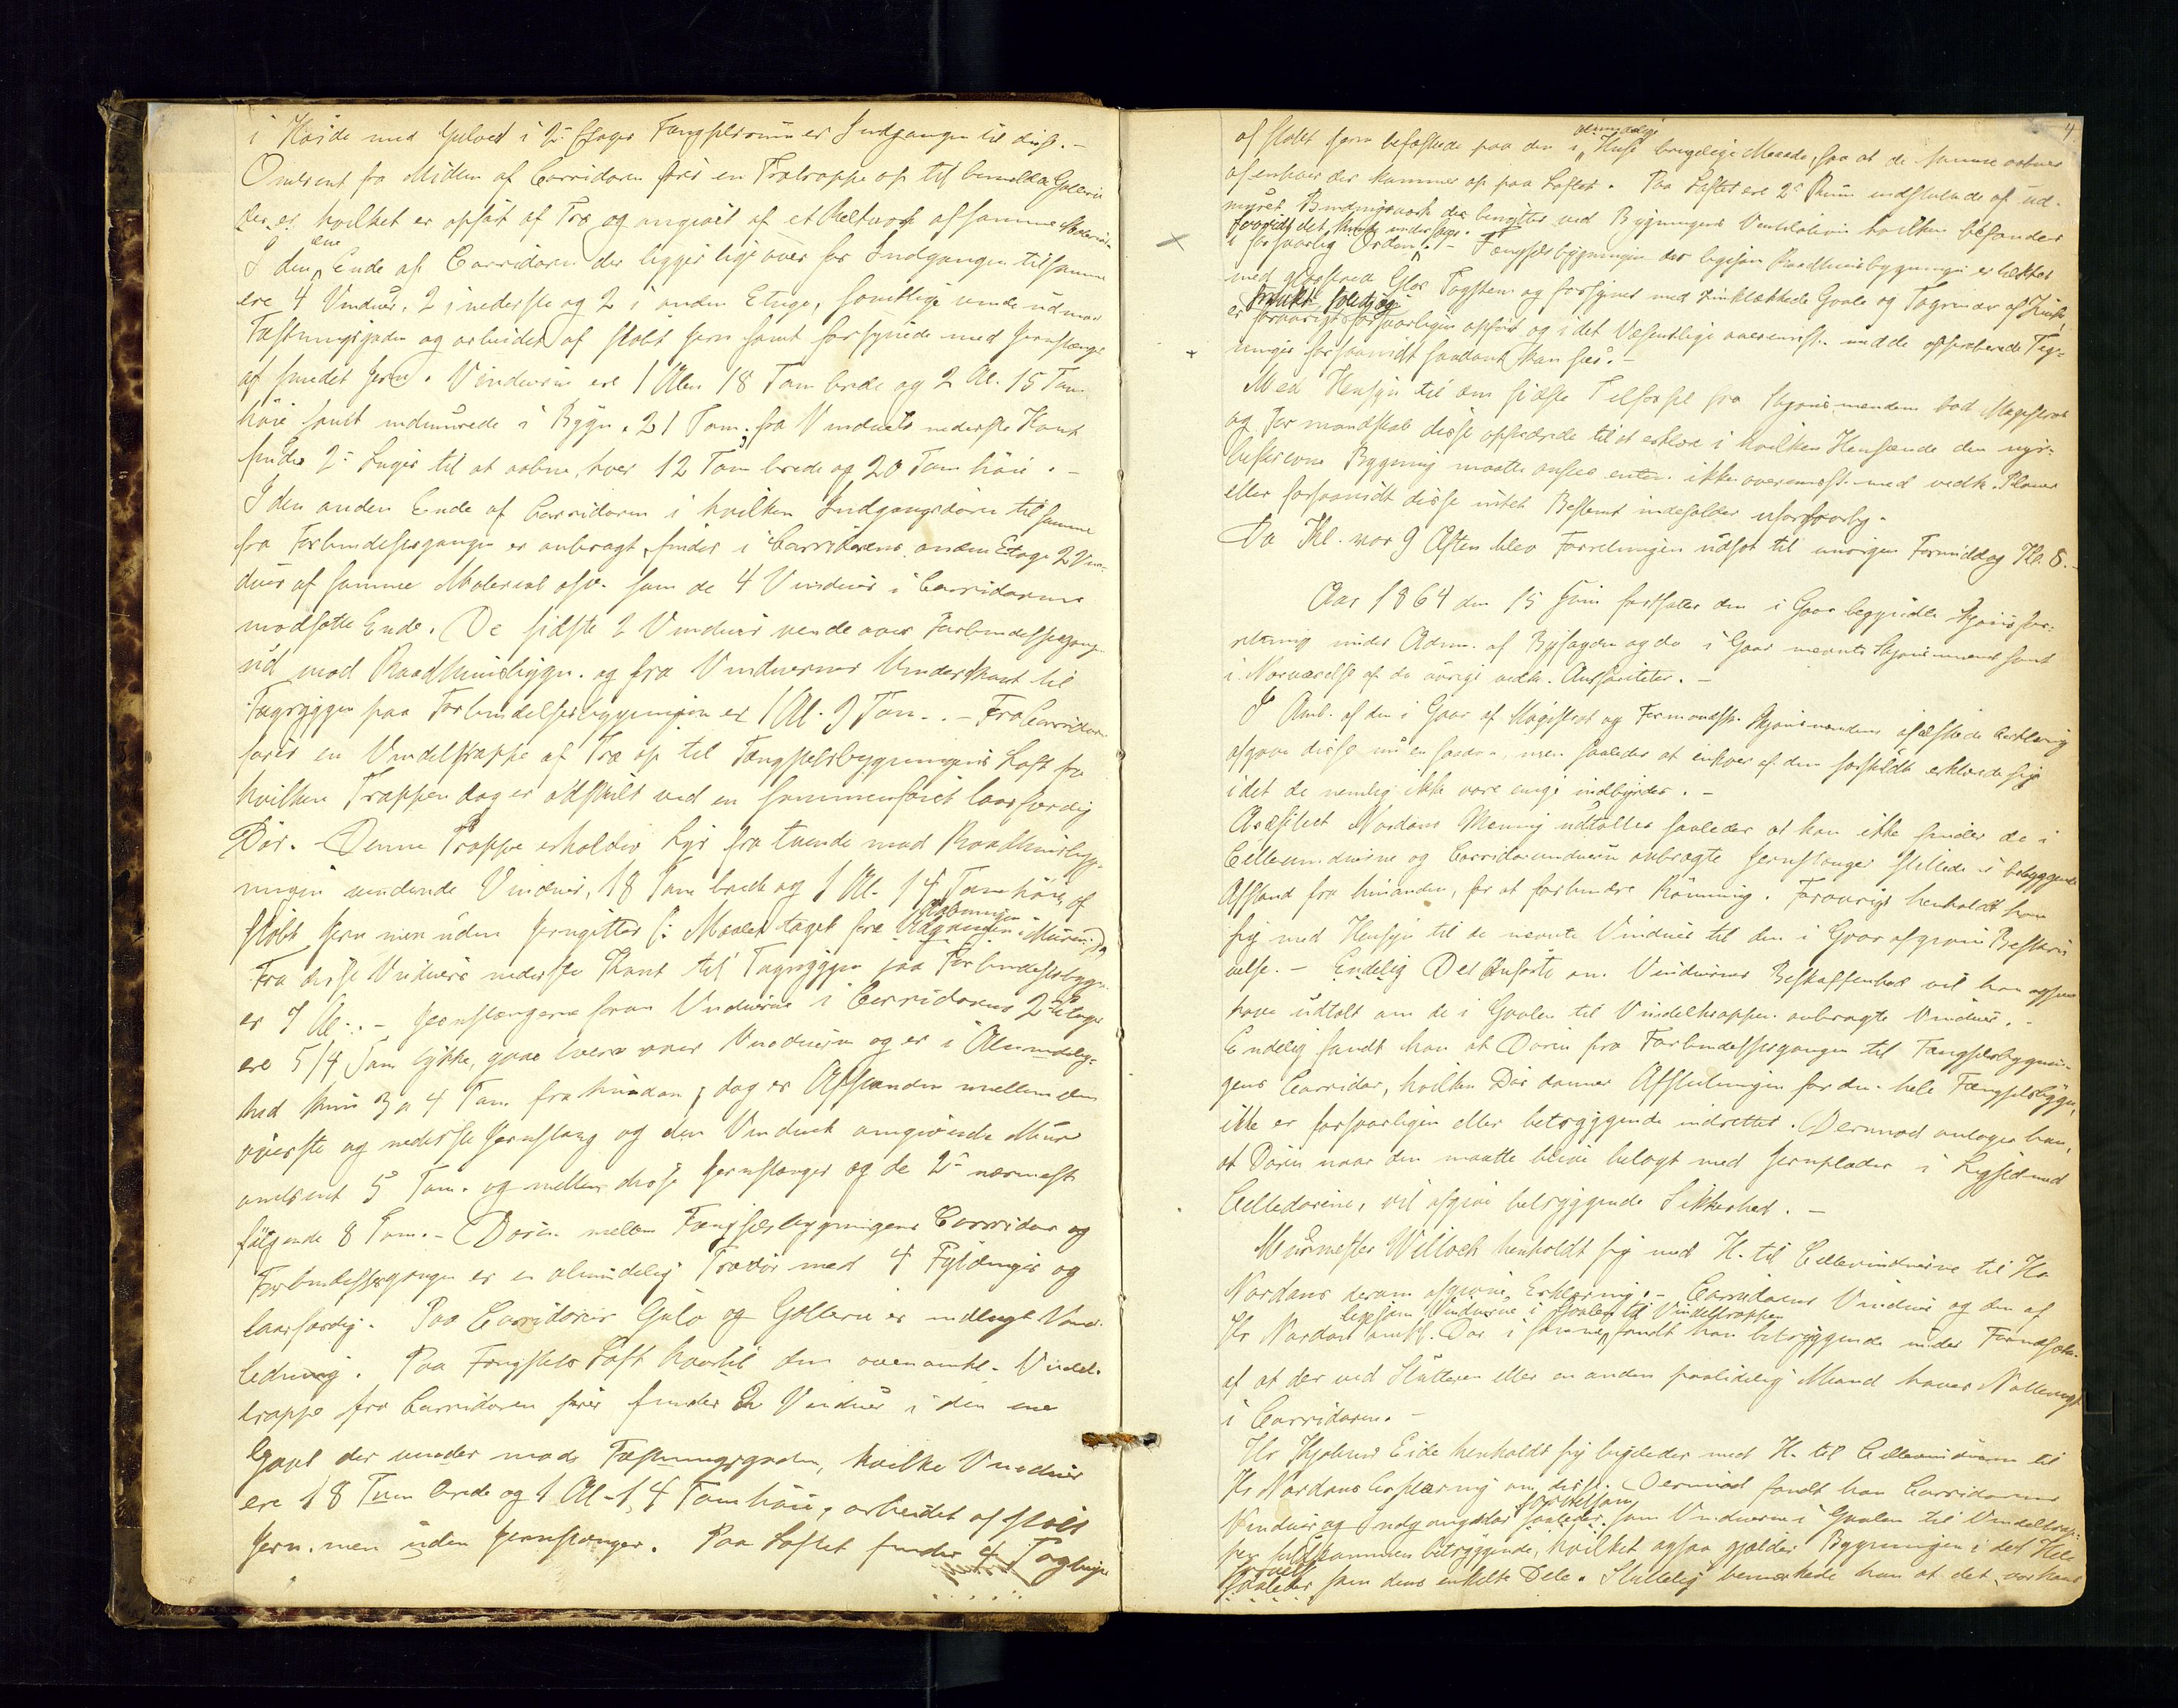 i Høide med Gulvet i 2den Etages Fængselsrum er Indgangen til disse. –
Omtrent fra Midten af Corridoren fører en Trætrappe op til bemeldte Galleri
der er hvilket er opført af Træ og omgivet af et Rekværk af samme Materiale
I den ene Ende af Corridoren der ligger lige over for Indgangen til samme
ere 4 Vinduer, 2 i nederste og 2 i anden Etage, samtlige vende ud mod
Fæstningsgaden og arbeidet af støbt Jern samt forsynede med Jernstænger
af smedet Jern. Vinduerne ere 1 Alen 18 Tom brede og 2 Al. 15 Tom.
høie samt indmurede i Bygn. 21 Tom. fra Vinduets nederste Kant
findes 2de Luger til at aabne, hver 12 Tom brede og 20 Tom høie. –
I den anden Ende af Corridoren i hvilken Indgangsdøren til samme
fra Forbindelsesgangen er anbragt, findes i Corridorens anden Etage 2 Vin-
duer af samme Material osv. som de 4 Vinduer i Corridorens
modsatte Ende. De sidste 2 Vinduer vende over Forbindelsesgangen
ud mod Raadhuusbygn. og fra Vinduernes Underkant til
Tagryggen paa Forbindelsesbygningen er 1 Al. 9 Tom. – Fra Corridoren
fører en Vindeltrappe af Træ op til Fængselsbygningens Loft fra
hvilken Trappen dog er adskilt ved en sammenføiet laasfærdig
Dør. – Denne Trappe erholder Lys fra tvende mod Raadhuusbyg-
ningen vendende Vinduer, 18 Tom brede og 1 Al. 14 Tom høie, af
støbt Jern men uden Jerngitter (: Maalet taget fra Aabningen i Muren :)
Fra disse Vinduers nederste Kant til Tagryggen paa Forbindelsesbygn.
er 7 Al. – Jernstængerne foran Vinduerne i Corridorens 2 Etager
ere 5/4 Tom tykke, gaae tvers over Vinduerne og er i Almindelig-
hed kun 3 a 4 Tom. fra hinanden, dog er Afstanden mellem den
øverste og nederste Jernstang og den Vinduet omgivende Muur
omtrent 5 Tom. og mellem disse Jernstænger og de 2de nærmest
følgende 8 Tom. – Døren mellem Fængselsbygningens Corridor og
Forbindelsesgangen er en almindelig Trædør med 4 Fyldinger og
laasfærdig. Paa Corridorens Gulv og Galleri er indlagt Vand-
ledning. Paa Fængslets Loft hvortil den ovenomhl. Vindel-
trappe fra Corridoren fører findes 2 Vinduer i den ene
Gavl der vender mod Fæstningsgaden, hvilke Vinduer
ere 18 Tom brede og 1 Al. 14 Tom høie, arbeidet af støbt
Jern, men uden Jernstænger. Paa Loftet findes 4 Tagluger
4.
af støbt Jern befæstede paa den i almindelige Huse brugelige Maade, saa at de kunne aabnes
af enhver der kommer op paa Loftet. Paa Loftet ere 2de Rum indsluttede af ud-
muret Bindingsværk der benyttes ved Bygningens Ventilation hvilken befandtes
forsaavidt det kunde undersøges
i forsvarlig Orden. – Fængselsbygningen der ligesom Raadhuusbygningen er tækket
med glasserede Tagsten og forsynet med zinktækkede Gavle og Tagrender af Zink,
smukt solid og
er forøvrigt forsvarligen opført og i det Væsentlige overensst. med de approberede Teg-
ninger forsaavidt saadant kan sees. –
Med Hensyn til den sidste Tilførsel fra Skjønsmændene bad Magistrat
og Formandskab disse opfordrede til at erklære i hvilken Henseende den nys-
beskrevne Bygning maatte ansees enten ikke overensst. med vedk. Planer
eller forsaavidt disse intet Bestemt indeholder uforsvarlig.
Da Kl. var 9 Aften blev Forretningen udsat til imorgen Formiddag Kl. 8. –
Aar 1864 den 15 Juni fortsattes den i Gaar begyndte Skjønsfor-
retning under Adm. af Byfogden og de i Gaar nævnte Skjønsmænd samt
i Nærværelse af de øvrige vedk. Authoriteter. –
I Anl. af den i Gaar af Magistrat og Formandsk. Skjønsmændene æskede Erklæring
afgave disse nu en saadan men saaledes at enhver af dem særskildt erklærede sig
idet de nemlig ikke vare enige indbyrdes. –
Architect Nordans Mening udtaltes saaledes at han ikke finder de i
Cellevinduerne og Corridorvinduerne anbragte Jernstænger stillede i betryggende
Afstand fra hinanden, for at forhindre Rømning. Forøvrigt henholdt han
sig med Hensyn til de nævnte Vinduer til den i Gaar afgivne Beskri-
velse. – Endelig Det Anførte om Vinduernes Beskaffenhed vil han ogsaa
have udtalt om de i Gavlen til Vindeltrappen anbragte Vinduer. –
Endelig fandt han at Døren fra Forbindelsesgangen til Fængselsbygnin-
gens Corridor, hvilken Dør danner Afslutningen for den hele Fængselsbygn.
ikke er forsvarligen eller betryggende indrettet. Derimod antager han,
at Døren naar den maatte blive belagt med Jernplader i Lighed med
Celledørene, vil afgive betryggende Sikkerhed. –
Muurmester Willoch henholdt sig med H. til Cellevinduerne til Hr.
Nordans derom afgivne Erklæring. – Corridorens Vinduer og den af
ligesom Vinduerne i Gavlen til Vindeltrappen
Hr Nordan omhl. Dør i samme, fandt han betryggende under Forudsætn.
af at der ved Slutteren eller en anden paalidelig Mand haves Nattevagt
i Corridoren. –
Hr Kjølner Eide henholdt sig ligeledes med H. til Cellevinduerne til
Hr Nordans Erklæring om disse. Derimod fandt han Corridorens
saavelsom
Vinduer og Indgangsdør saaledes som Vinduerne i Gavlen til Vindeltrap-
pen fuldkommen betryggende, hvilket ogsaa gjælder Bygningen i det Hele
saavel
saaledes som dens enkelte Dele. Sluttelig bemærkede han at det var hans